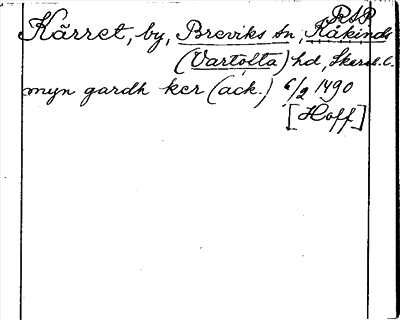 RSP
Kärret, by, Breviks sn, Kåkinds
(Vartofta) hd, Skarab. l.
myn gardh ker (ack.) 6/2 1490
[Hoff]